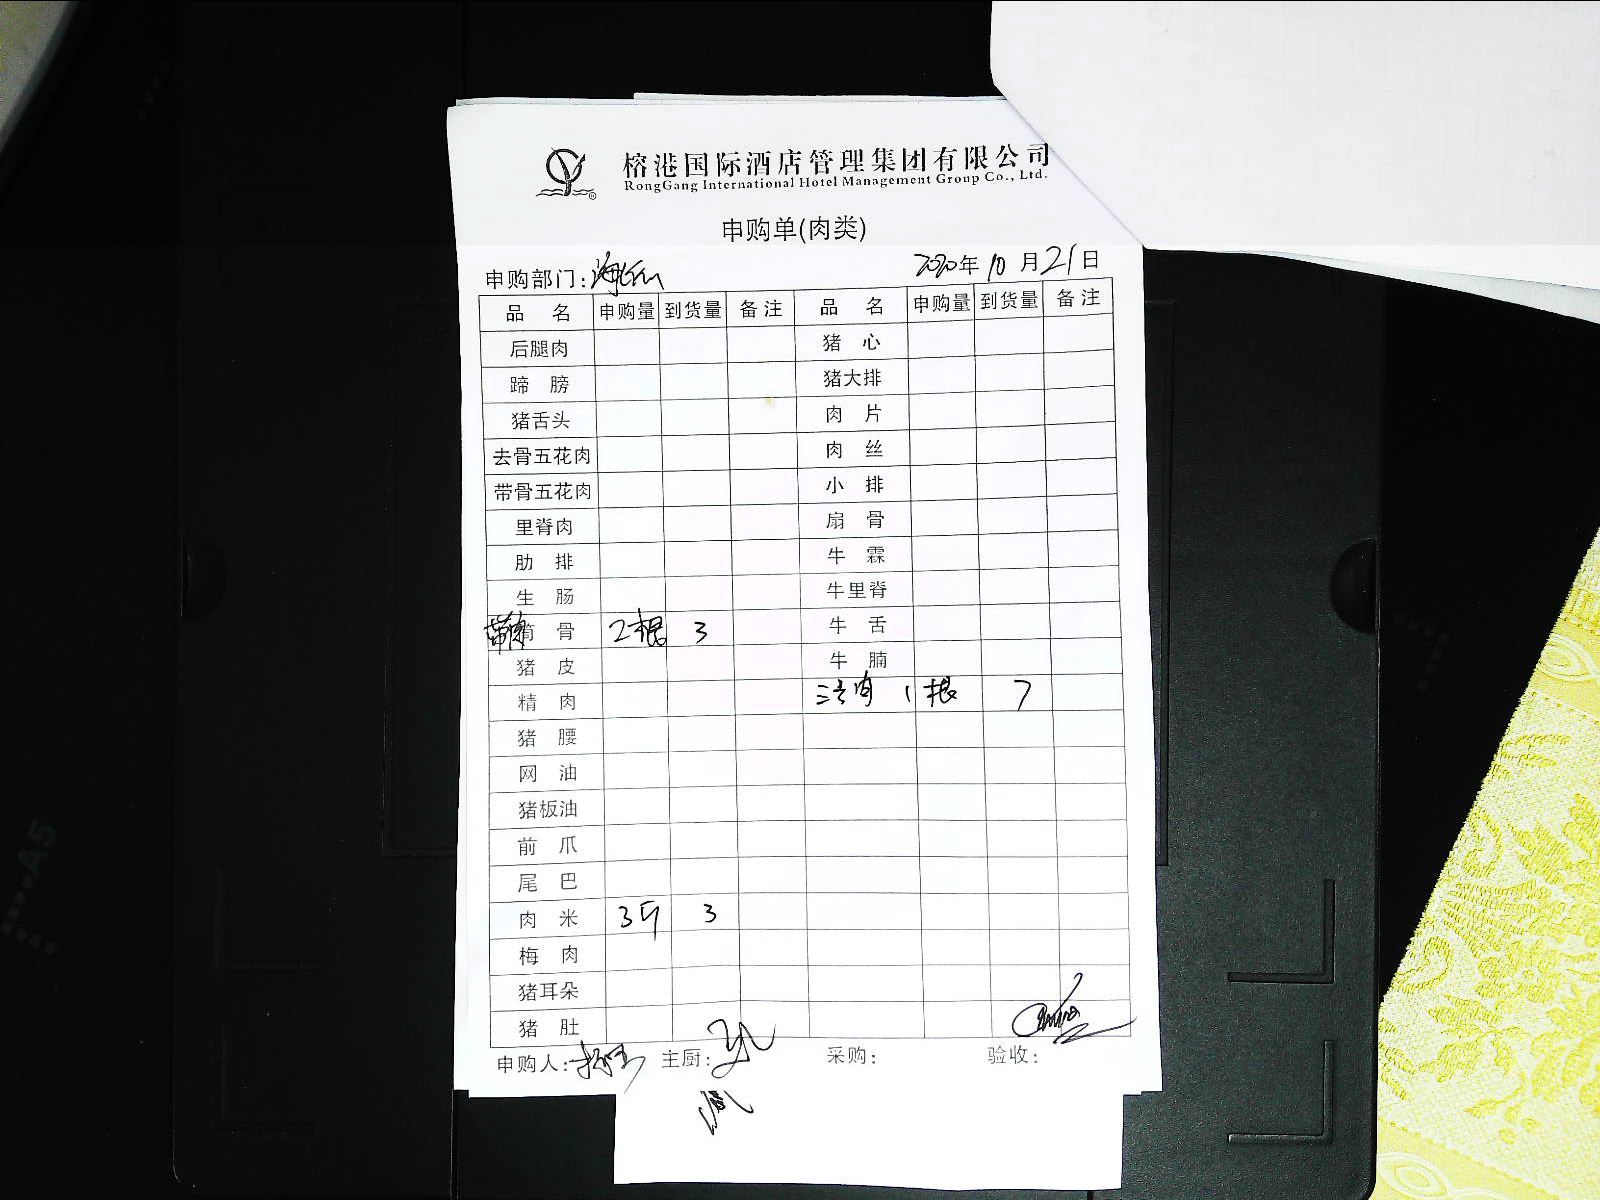 榕港国际酒店管理集团有限公司
RongGang International Hotel Management Group Co., Ltd.
申购单(肉类)
申购部门: 2020年10月21日
品名 申购量 到货量 备注 品名 申购量 到货量 备注
后腿肉 猪心
蹄膀 猪大排
猪舌头 肉片
去骨五花肉 肉丝
带骨五花肉 小排
里脊肉 扇骨
肋排 牛霖
生肠 牛里脊
带肉筒骨 2根 3 牛舌
猪皮 牛腩
精肉 肉 1根 7
猪腰
网油
猪板油
前爪
尾巴
肉米 3斤 3
梅肉
猪耳朵
猪肚
申购人: 主厨: 采购: 验收:
A5